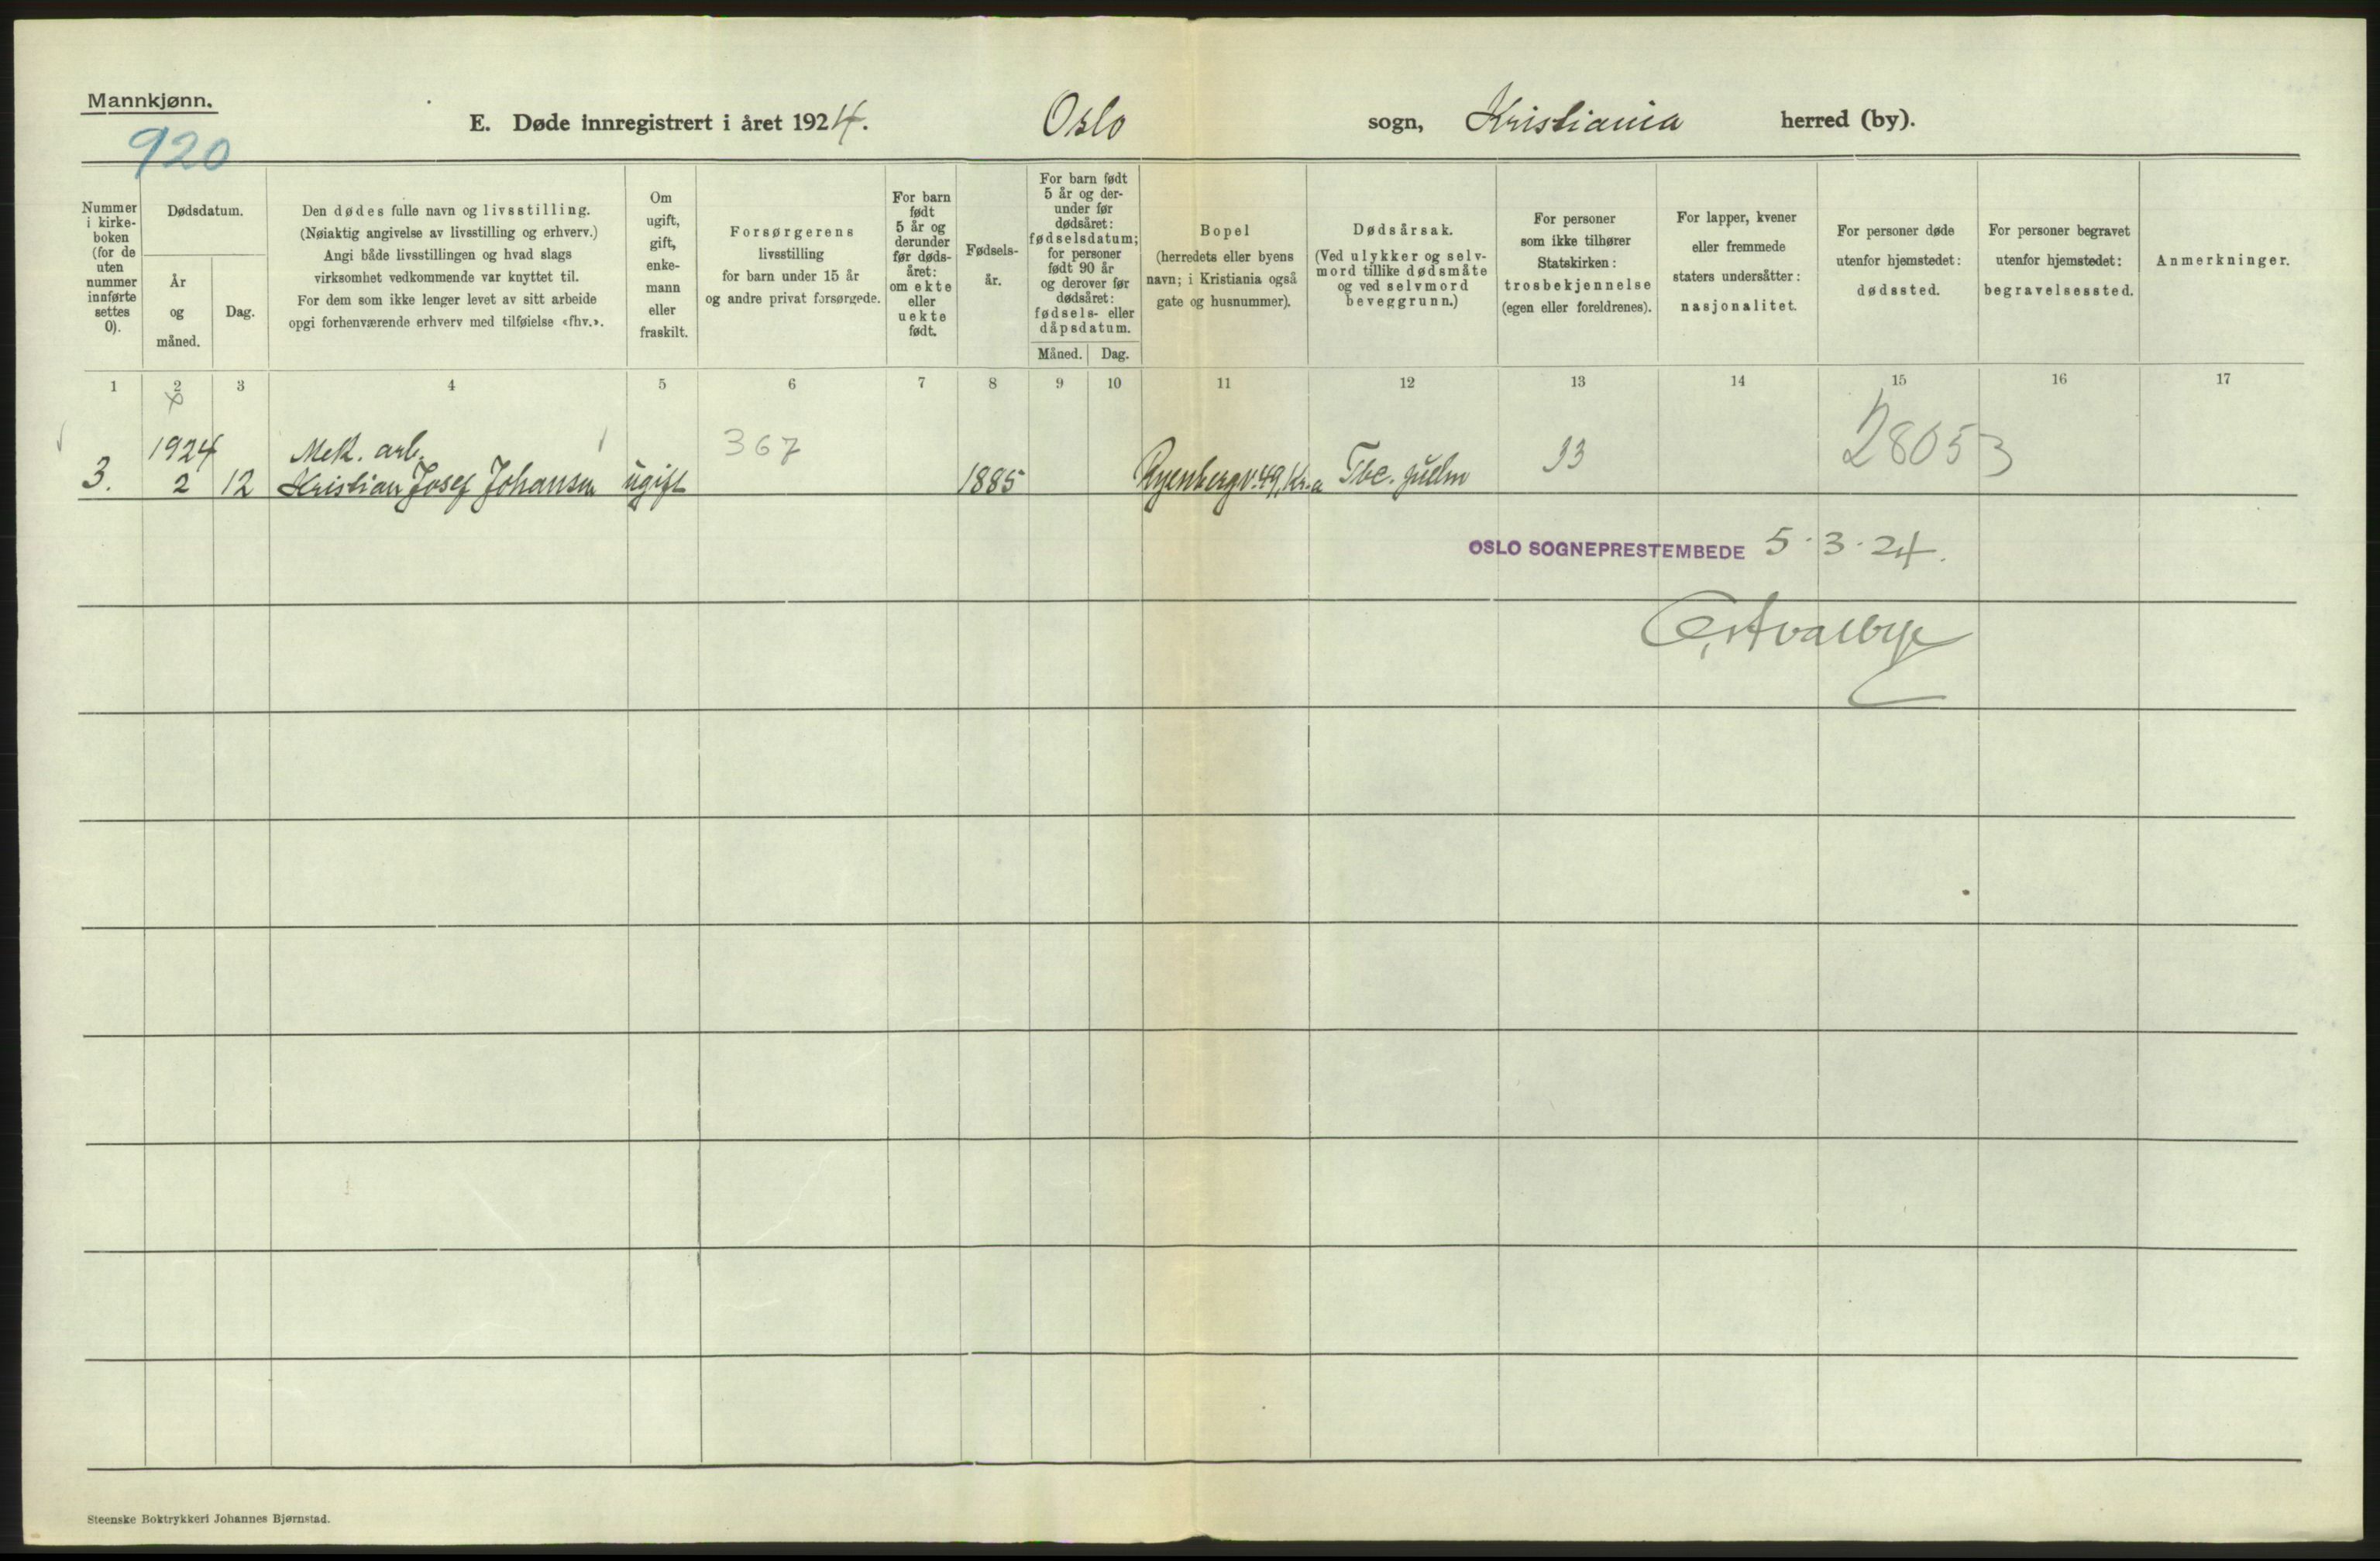 Mannkjønn.
920
E. Døde innregistrert i året 1924. Oslo sogn, Kristiania herred (by).
Nummer
i kirke-
boken
(for de
uten
nummer
innførte
settes
0).
Dødsdatum.
År
og
måned.
Dag.
Den dødes fulle navn og livsstilling.
(Nøiaktig angivelse av livsstilling og erhverv.)
Angi både livsstillingen og hvad slags
virksomhet vedkommende var knyttet til.
For dem som ikke lenger levet av sitt arbeide
opgi forhenværende erhverv med tilføielse «fhv.».
Om
ugift,
gift,
enke-
mann
eller
fraskilt.
Forsørgerens
livsstilling
for barn under 15 år
og andre privat forsørgede.
For barn
født
5 år og
derunder
før døds-
året:
om ekte
eller
uekte
født.
Fødsels-
år.
For barn født
5 år og der-
under før
dødsåret:
fødselsdatum;
for personer
født 90 år
og derover før
dødsåret:
fødsels- eller
dåpsdatum.
Måned. Dag.
Bopel
(herredets eller byens
navn; i Kristiania også
gate og husnummer).
Dødsårsak.
(Ved ulykker og selv-
mord tillike dødsmåte
og ved selvmord
beveggrunn.)
For personer
som ikke tilhører
Statskirken:
trosbekjennelse
(egen eller foreldrenes).
For lapper, kvener
eller fremmede
staters undersåtter:
nasjonalitet.
For personer døde
utenfor hjemstedet:
dødssted.
For personer begravet
utenfor hjemstedet:
begravelsessted.
Anmerkninger.
1 2 3 4 5 6 7 8 9 10 11 12 13 14 15 16 17
1924 Mek. arb. 367 93 28053
3. 2 12 Kristian Josef Johansen ugift 1885 Ryenbergv. 49, Kr.a Tbc. pulm
OSLO SOGNEPRESTEMBEDE 5.3.24.
Steenske Boktrykkeri Johannes Bjørnstad.